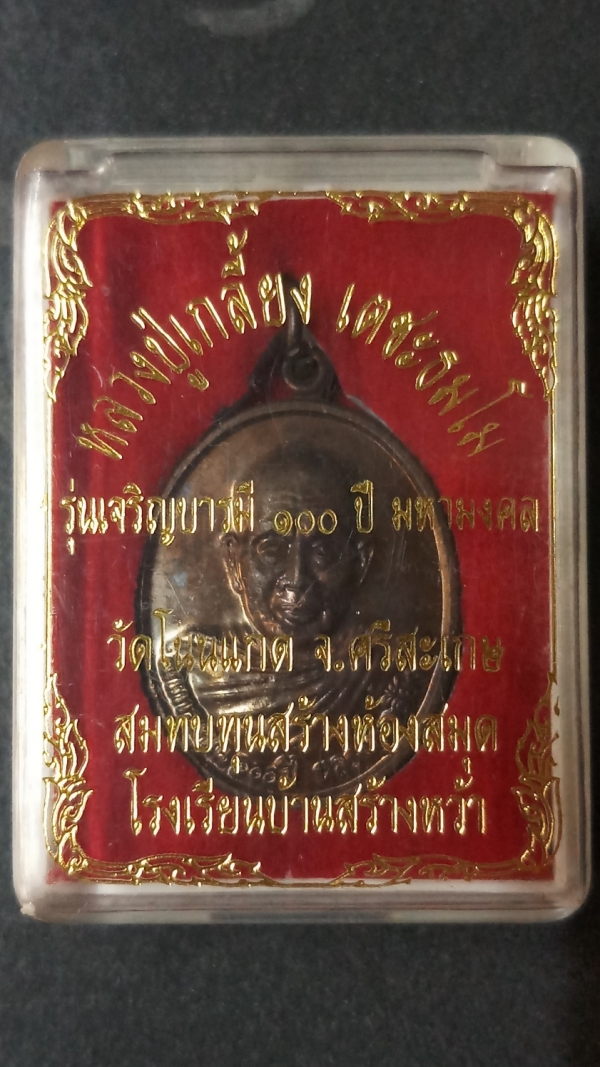 หลวงปู่เกลี้ยง เตชะธมฺโม
รุ่นเจริญบารมี ๑๐๐ ปี มหามงคล
วัดโนนแกด จ.ศรีสะเกษ
สมทบทุนสร้างห้องสมุด
โรงเรียนบ้านสร้างหว้า